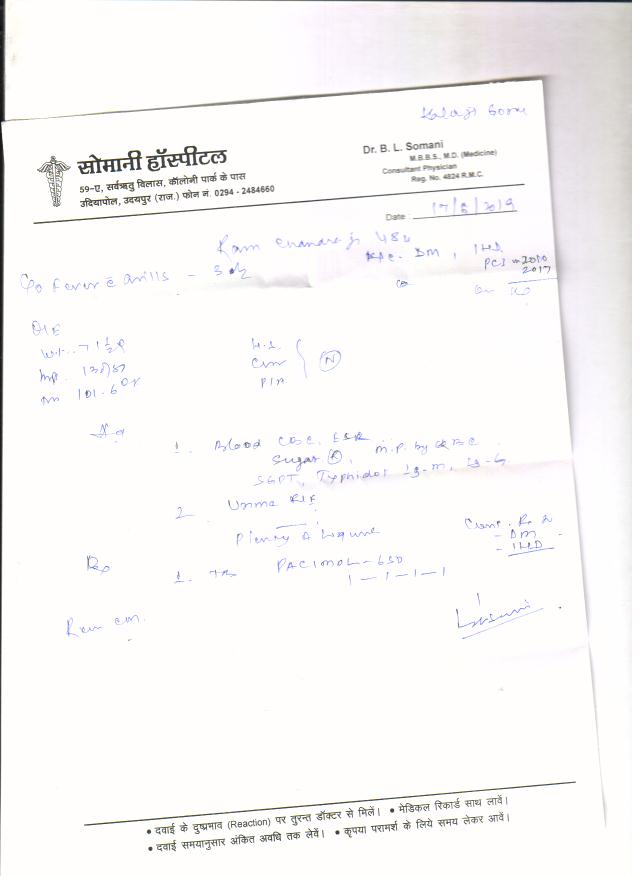 सोमानी हॉस्पीटल
59-ए, सर्वऋतु विलास, कॉलोनी पार्क के पास
उदियापोल, उदयपुर (राज.) फोन नं. 0294 - 2484660
Dr. B. L. Somani
M.B.B.S., M.D. (Medicine)
Consultant Physician
Reg. No. 4824 R.M.C.
Date : 17/6/2019
Ram Chandra ji 48y
DM, IHD
PCI - 2010
2017
C/o Fever c chills - 3 d
O/E
Wt. 71 1/2
101.6
H.S.
P/A
N
1. Blood CBC, ESR
Sugar R, M.P. by QBC
SGPT, Typhidot Ig-M, Ig-G
2 Urine
Plenty of Liquid
- DM
- IHD
Rx
1. PACIMOL-650
1-1-1-1
• दवाई के दुष्प्रभाव (Reaction) पर तुरन्त डॉक्टर से मिलें। • मेडिकल रिकार्ड साथ लावें।
• दवाई समयानुसार अंकित अवधि तक लेवें। • कृपया परामर्श के लिये समय लेकर आवें।